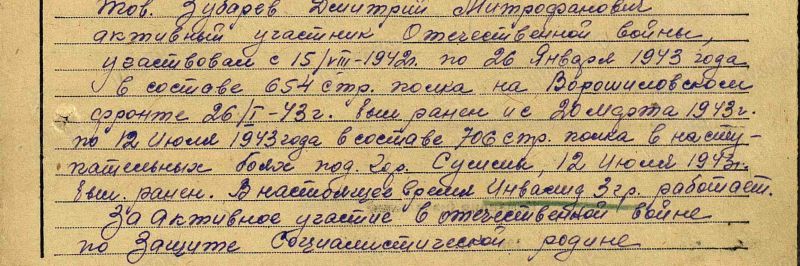 Тов. Зубарев Дмитрий Митрофанович
активный участник Отечественной войны,
участвовал с 15/VIII-1942г. по 26 Января 1943 года
в составе 654 стр. полка на Ворошиловском
фронте 26/I-43г. был ранен и с 20 марта 1943г.
по 12 Июля 1943 года в составе 706 стр. полка в насту-
пательных боях под. гор. 12 Июля 1943г.
был. ранен. В настоящее время Инвалид 3 гр. работает.
За активное участие в отечественной войне
по Защите Социалистической родине